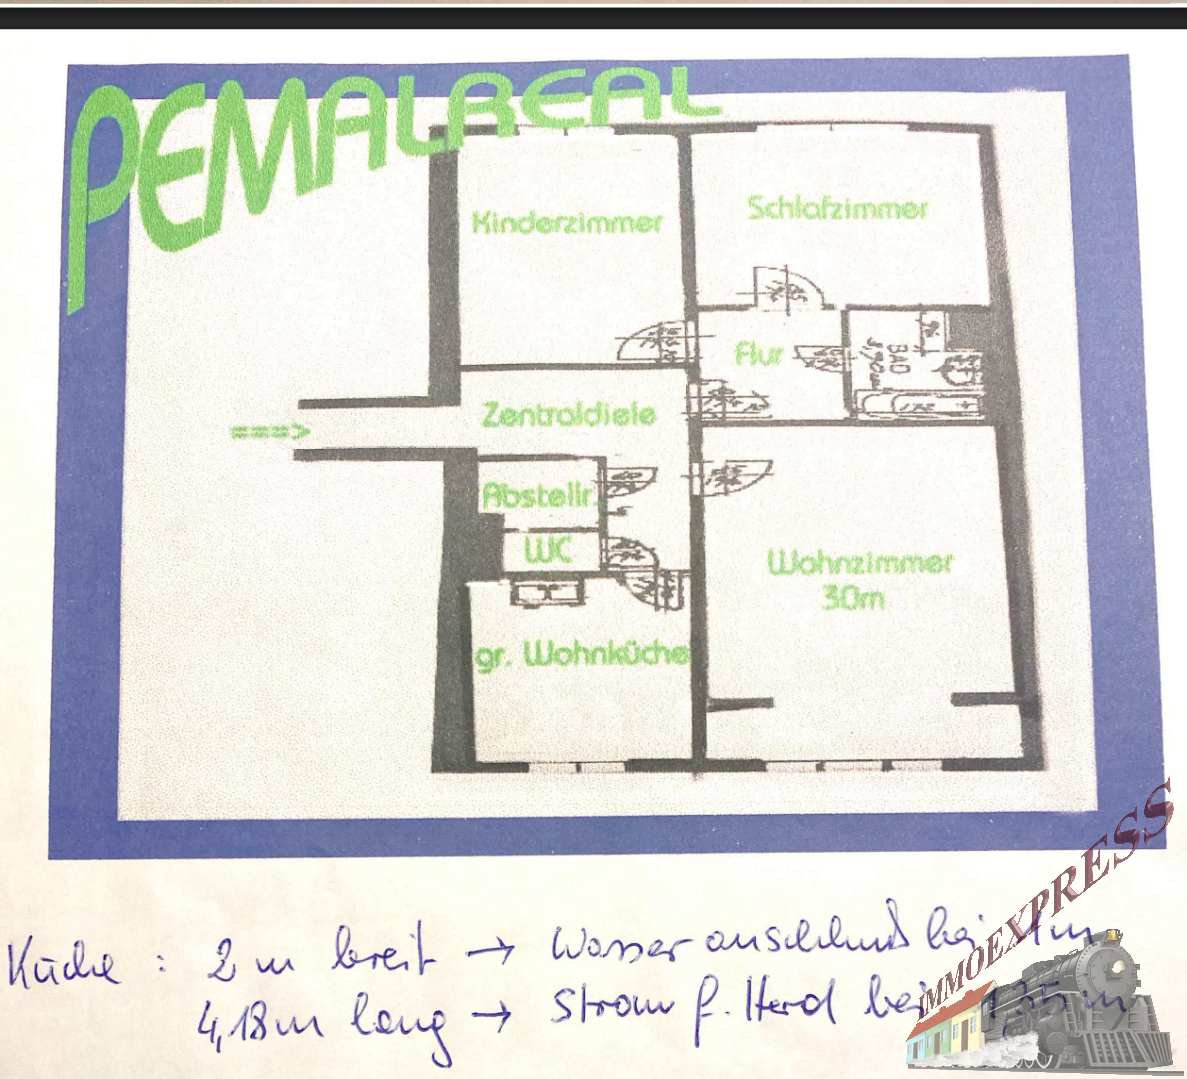 PEMALREAL
Kinderzimmer
Schlafzimmer
Flur
BAD
Zentraldiele
===>
Abstellr.
WC
Wohnzimmer
30m
gr. Wohnküche
IMMOEXPRESS
Küche : 2 m breit → Wasseranschluß bei 1m
4,18m lang → Strom f. Herd bei 1,35m